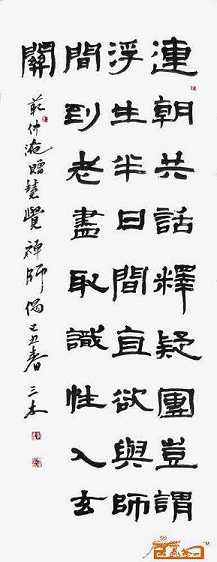 連朝共話釋疑團豈謂
浮生半日間直欲與師
間到老盡取識性入玄
關
范仲淹贈慧覺禅師偈己丑春三木